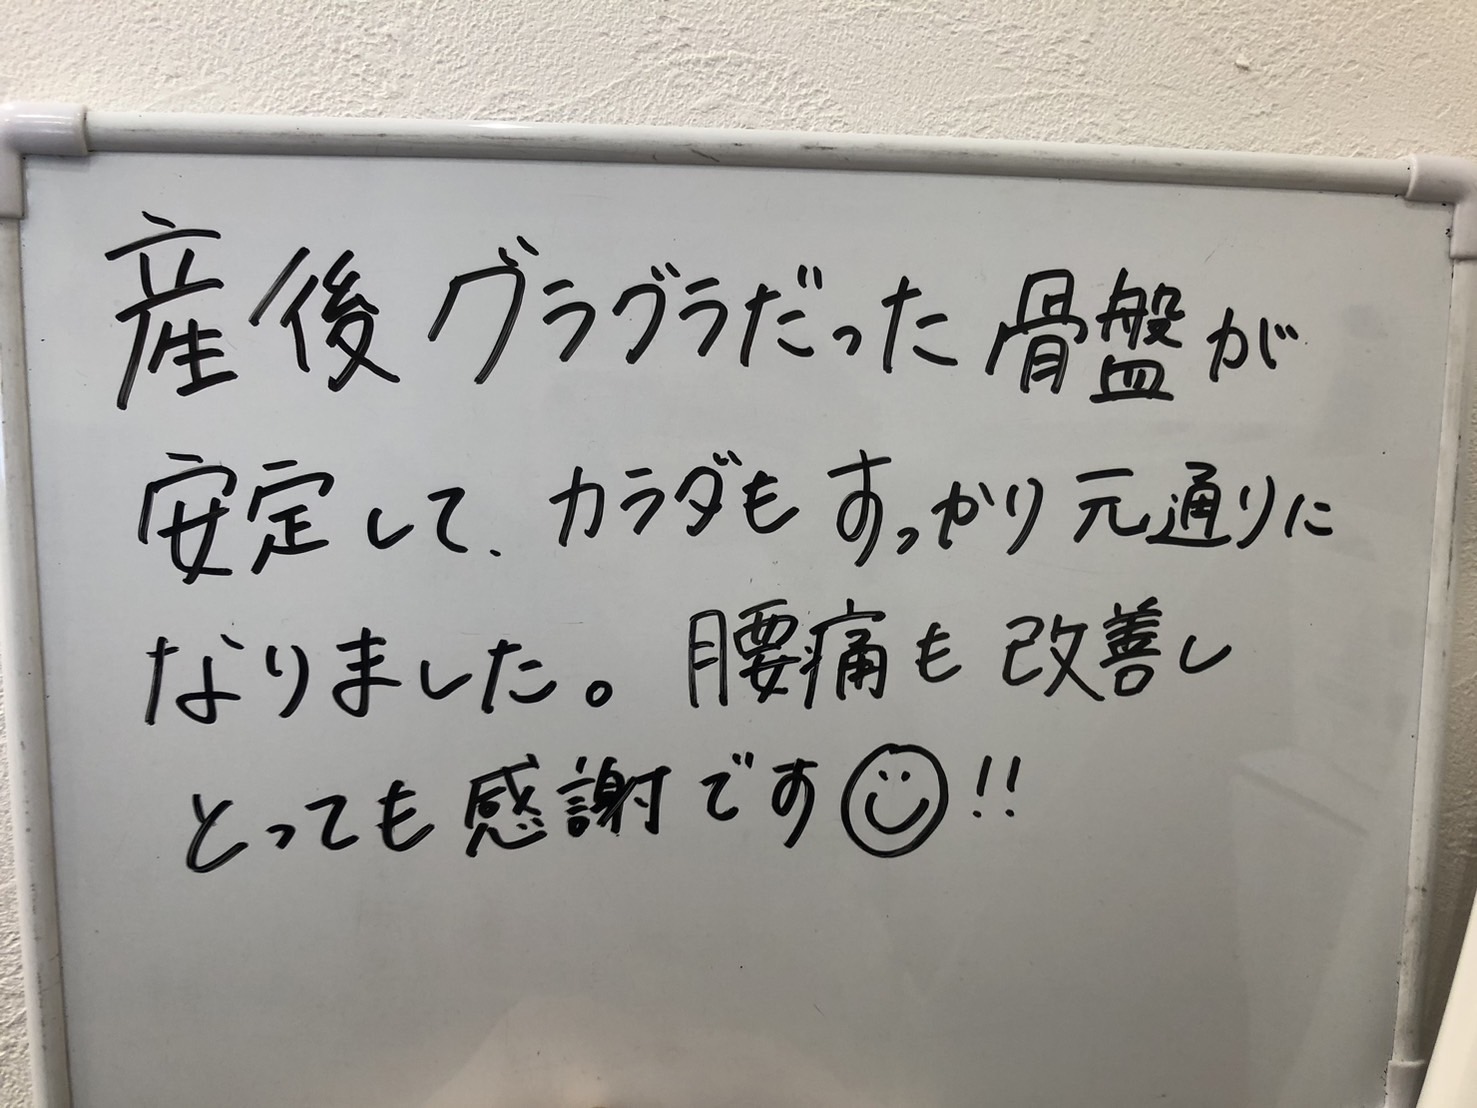 産後グラグラだった骨盤が
安定して、カラダもすっかり元通りに
なりました。腰痛も改善し
とっても感謝です☺!!